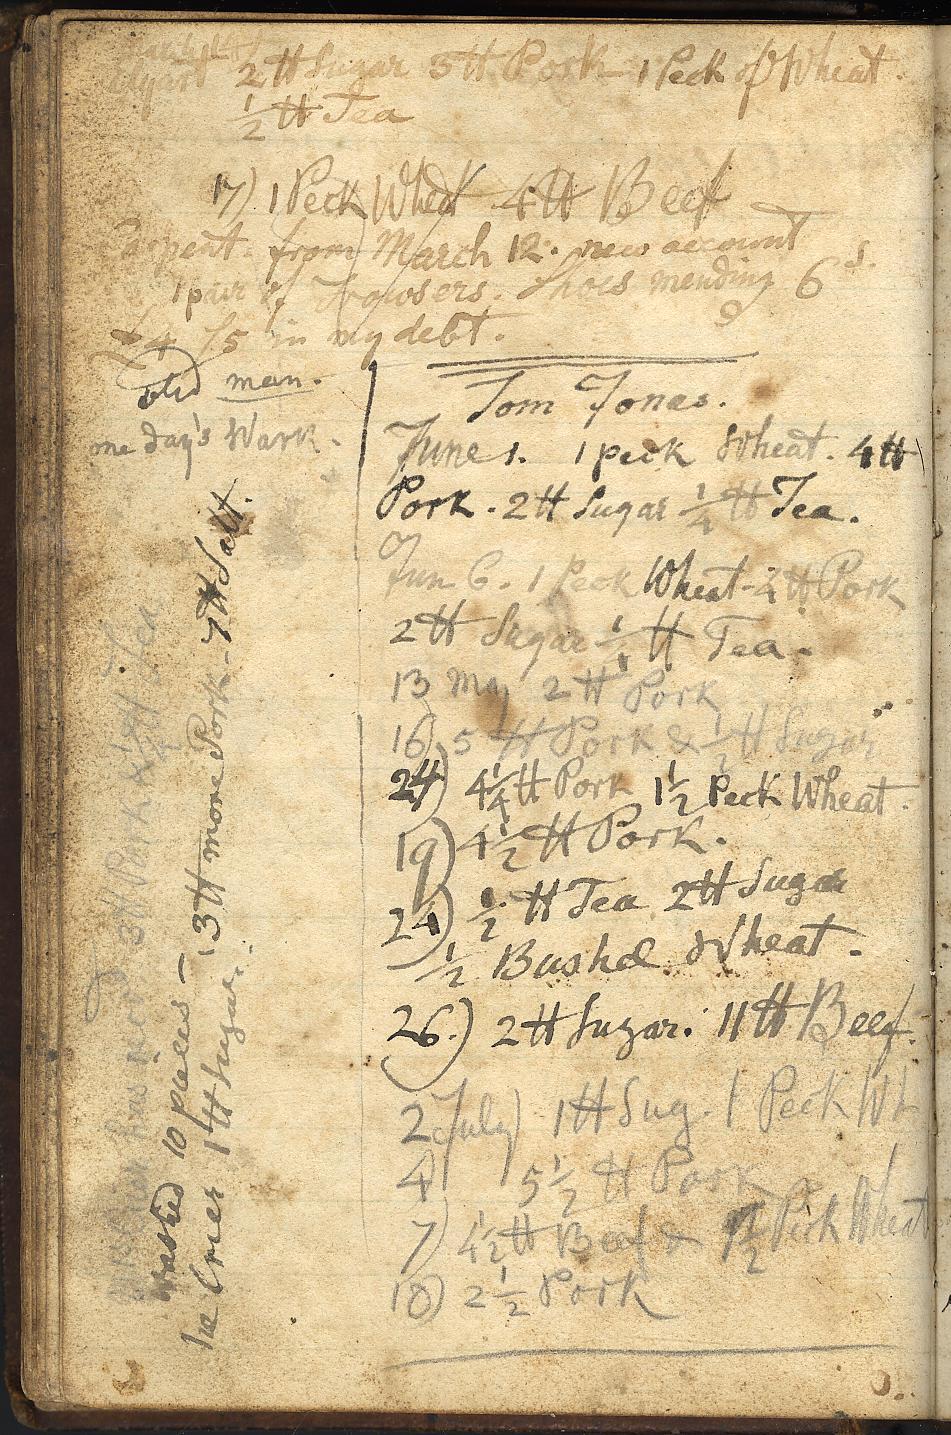 2 ℔ Sugar 5 ℔ Pork 1 Peck of Wheat.
½ ℔ Tea
17) 1 Peck Wheat 4 ℔ Beef
from March 12. new account
1 pair of Trowsers. Shoes mending 6 s.
£4 /5 in my debt.
old man.
one day's Wark.
Tom Jonas.
June 1. 1 peck Wheat. 4 ℔
Pork. 2 ℔ Sugar ¼ ℔ Tea.
Jun 6. 1 Peck Wheat - 4 ℔ Pork
2 ℔ Sugar ¼ ℔ Tea.
13 May 2 ℔ Pork
16) 5 ℔ Pork & ½ ℔ Sugar
24) 4¼ ℔ Pork 1½ Peck Wheat.
19) 4½ ℔ Pork.
24) ½ ℔ Tea 2 ℔ Sugar
½ Bushel Wheat.
26.) 2 ℔ Sugar. 11 ℔ Beef.
2 July) 1 ℔ Sug. 1 Peck Wh
4) 5½ ℔ Pork
7) 4½ ℔ Beef & ½ Peck Wheat
18) 2½ Pork
3 ℔ Pork ¼ ℔ Tea
washed 10 pieces — 3 ℔ more Pork - 7 ℔ Salt.
1 ℔ Sugar.